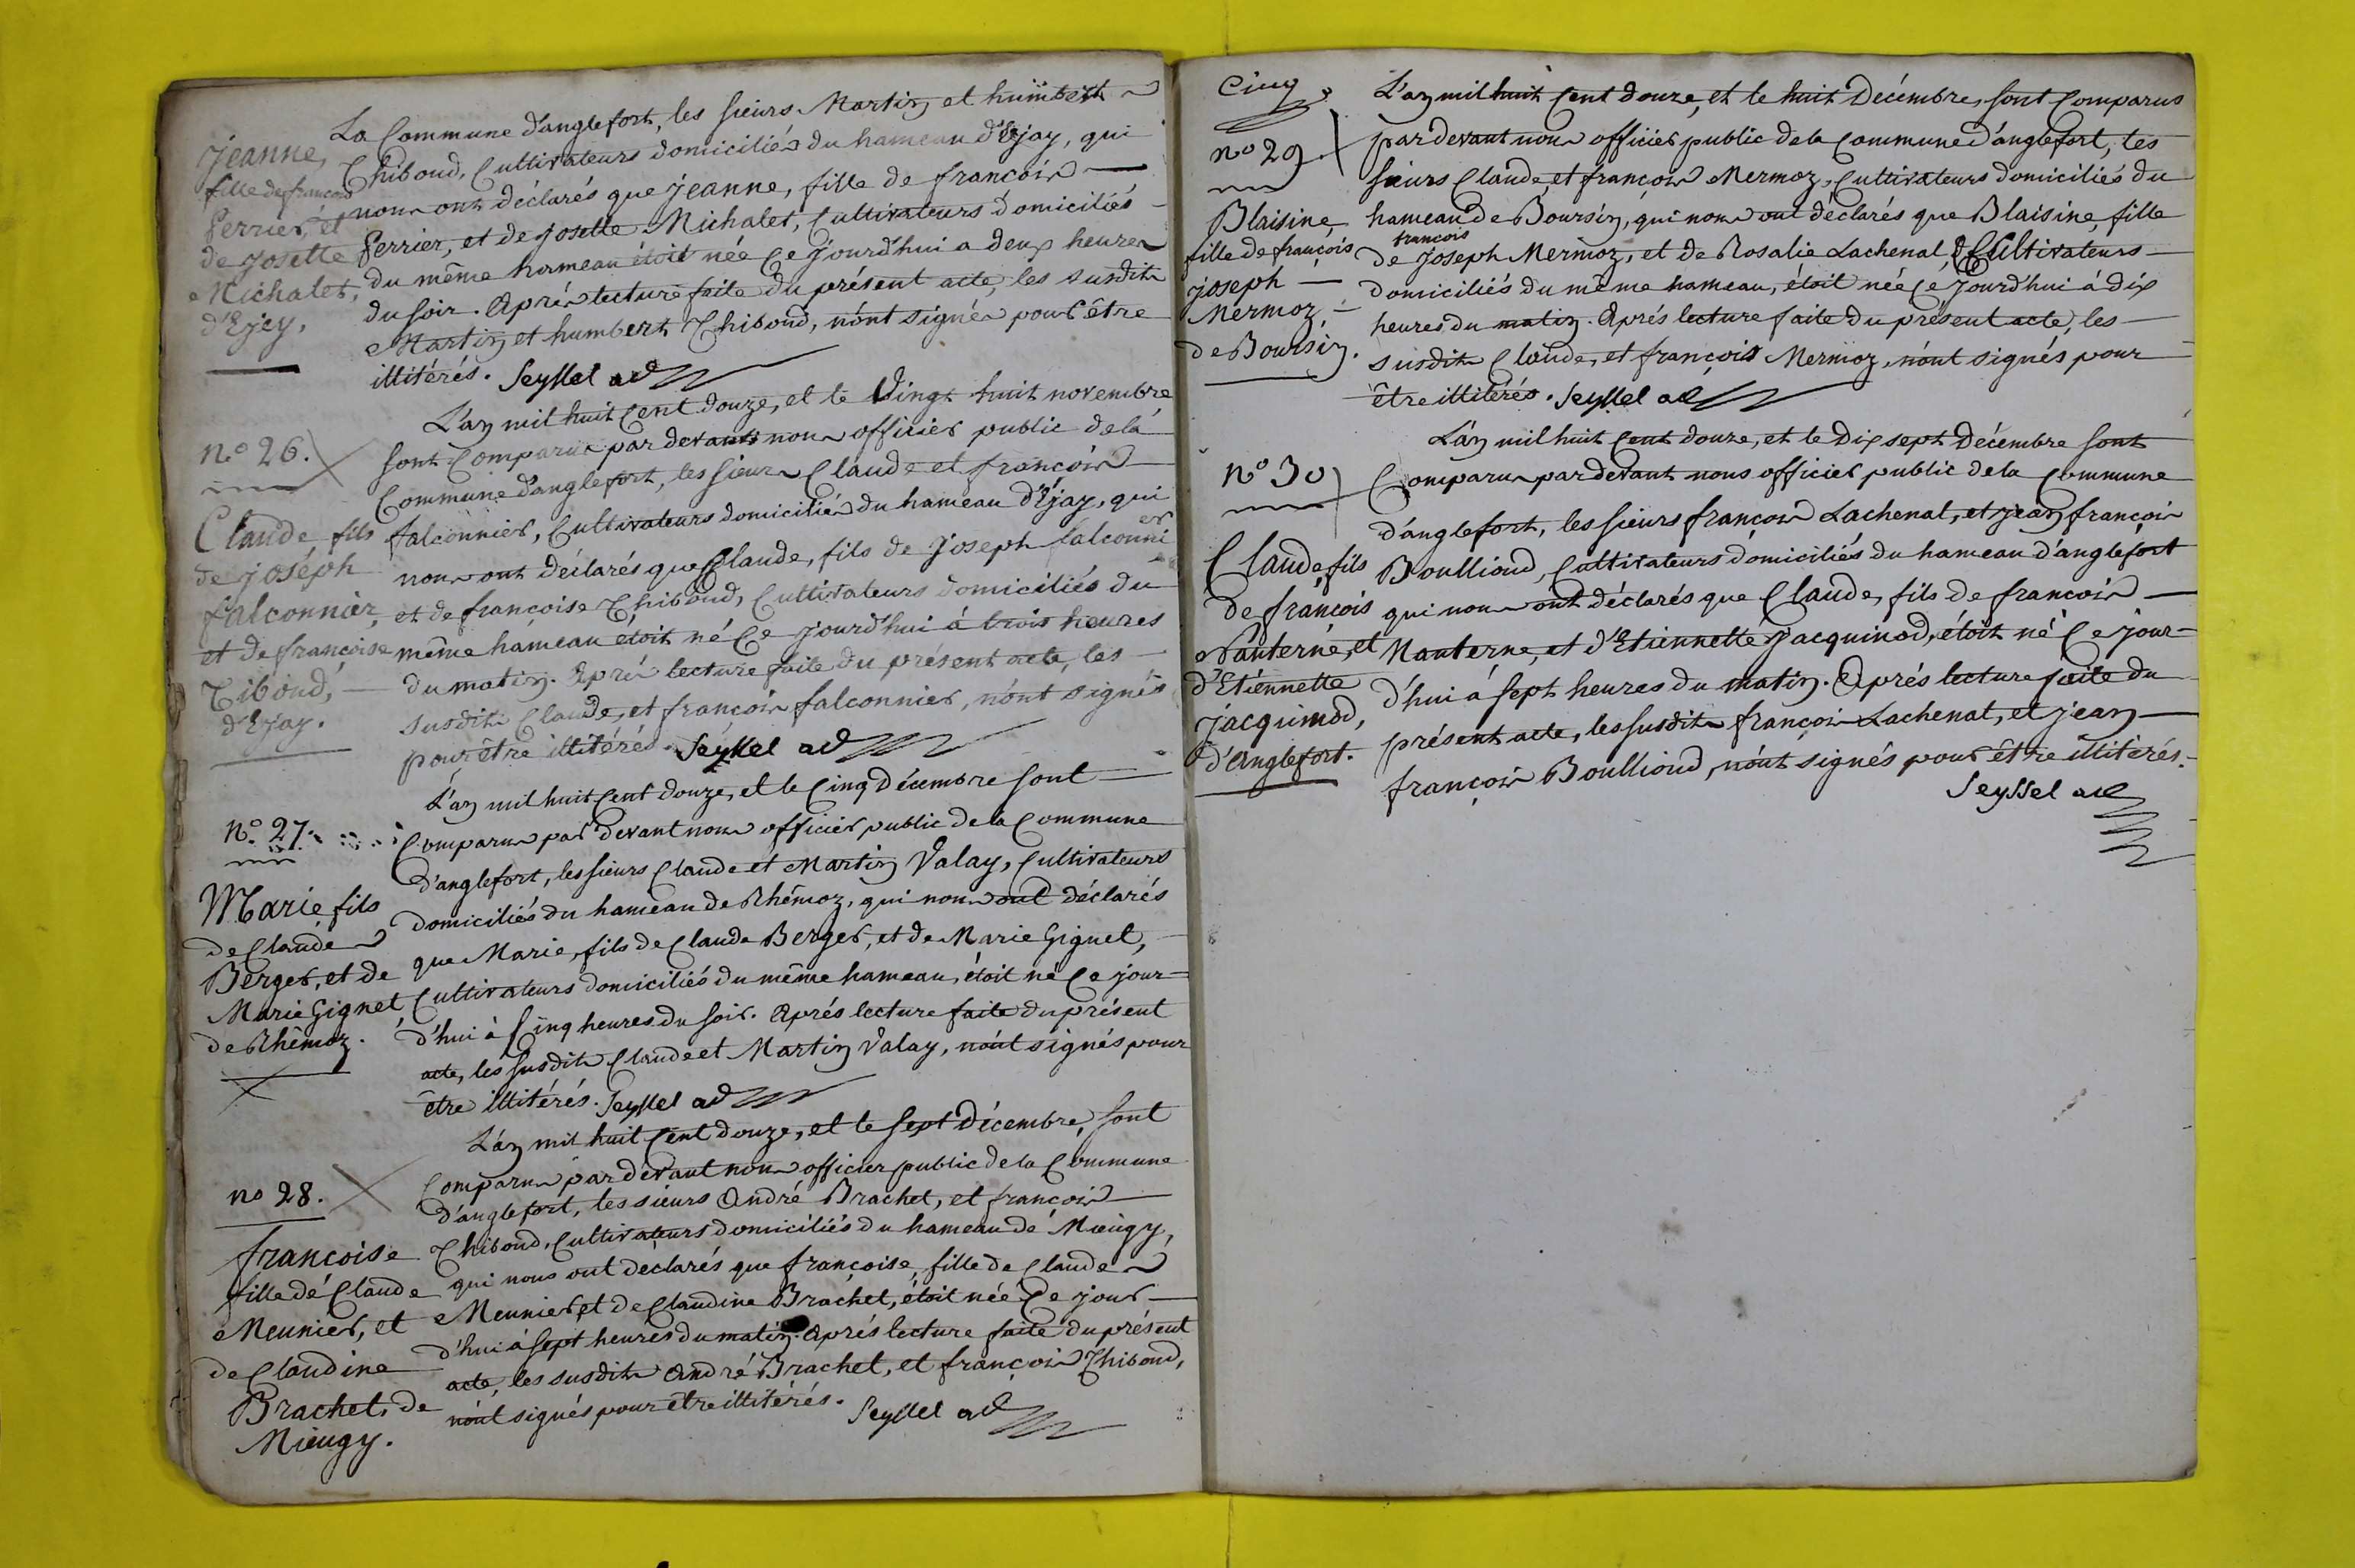 La Commune d'anglefort, les sieurs Martin et humbert
Thiboud, Cultivateurs domiciliés du hameau d'Ejay, qui
nous ont déclarés que jeanne, fille de françois
ferrier, et de josette Michalet, Cultivateurs domiciliés
du même hameau étoit née Ce jourd'hui a deux heures
du soir. Aprés lecture faite du présent acte, les susdits
Martin et humbert Thiboud, n'ont signés pour être
illitérés. Seyssel ad
jeanne,
fille de françois
ferrier, et
de josette
Michalet,
d'Ejey.
L'an mil huit Cent douze, et le Vingt huit novembre
sont Comparus par devants nous officier public de la
Commune d'anglefort, les sieurs Claude et françois
falconnier, Cultivateurs domiciliés du hameau d'Ejay, qui
nous ont déclarés que Claude, fils de joseph falconnier
et de françoise Thiboud, Cultivateurs domiciliés du
même hameau étoit né Ce jourd'hui à trois heures
du matin. Aprés lecture faite du présent acte, les
susdits Claude, et françois falconnier, n'ont signés
pour être illitérés. Seyssel ad
n.º 26.
Claude, fils
de joséph
falconnier,
et de françoise
Tiboud,
d'Ejay.
L'an mil huit Cent douze, et le Cinq Décembre sont
Comparus par devant nous officier public de la Commune
d'anglefort, les sieurs Claude et Martin Valay, Cultivateurs
domiciliés du hameau de Rhémoz, qui nous ont déclarés
que Marie, fils de Claude Berger, et de Marie Gignet,
Cultivateurs domiciliés du même hameau, étoit né Ce jour=
d'hui à Cinq heures du soir. Aprés lecture faite du présent
acte, les susdits Claude et Martin Valay, n'ont signés pour
être illitérés. Seyssel ad
n.º 27.
Marie, fils
de Claude
Berger, et de
Marie Gignet,
de Rhémoz.
L'an mil huit Cent douze, et le sept Décembre, sont
Comparus par devant nous officier public de la Commune
d'anglefort, les sieurs André Brachet, et françois
Thiboud, Cultivateurs domiciliés du hameau de Mieugy,
qui nous ont déclarés que françoise, fille de Claude
Meunier, et de Claudine Brachet, étoit née Ce jour
d'hui à sept heures du matin. Aprés lecture faite du présent
acte, les susdits André Brachet, et françois Thiboud,
n'ont signés pour être illitérés. Seyssel ad
no 28.
françoise
fille de Claude
Meunier, et
de Claudine
Brachet, de
Mieugy.
Cinq
L'an mil huit Cent douze, et le huit Décembre, sont Comparus
par devant nous officier public de la Commune d'anglefort, les
sieurs Claude, et françois Mermoz, Cultivateurs domiciliés du
hameau de Boursin, qui nous ont déclarés que Blaisine, fille
françois
de joseph Mermoz, et de Rosalie Lachenal, Cultivateurs
domiciliés du même hameau, étoit née Ce jourd'hui à dix
heures du matin. Aprés lecture faite du présent acte, les
susdits Claude, et françois Mermoz, n'ont signés pour
être illitérés. Seyssel ad
nº 29.
Blaisine,
fille de françois
joseph
Mermoz,
de Boursin.
L'an mil huit Cent douze, et le Dix sept Décembre sont
Comparus par devant nous officier public de la Commune
d'anglefort, les sieurs françois Lachenal, et jean françois
Boullioud, Cultivateurs domiciliés du hameau d'anglefort
qui nous ont déclarés que Claude, fils de françois
Nanterne, et d'Etiennette Jacquinod, étoit né Ce jour=
d'hui à sept heures du matin. Aprés lecture faite du
présent acte, les susdits françois Lachenal, et jean
françois Boullioud, n'ont signés pour être illitérés.
Seyssel ad
nº 30
Claude, fils
de françois
Nanterne, et
d'Etiennette
jacquinod,
d'Anglefort.